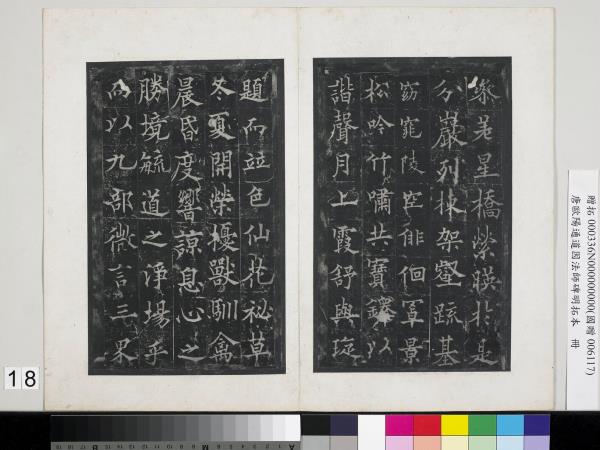 粲若星橋縈暎於是
分巖列棟架壑疏基
窈窕陵空徘徊罩景
松吟竹嘯共寶鐸以
諧聲月上霞舒與琁
題而竝色仙花祕草
冬夏開榮擾獸馴禽
晨昏度響諒息心之
勝境毓道之淨場乎
而以九部微言三果
贈拓 000336N000000000(國贈 006117)
唐歐陽通道因法師碑明拓本 冊
18